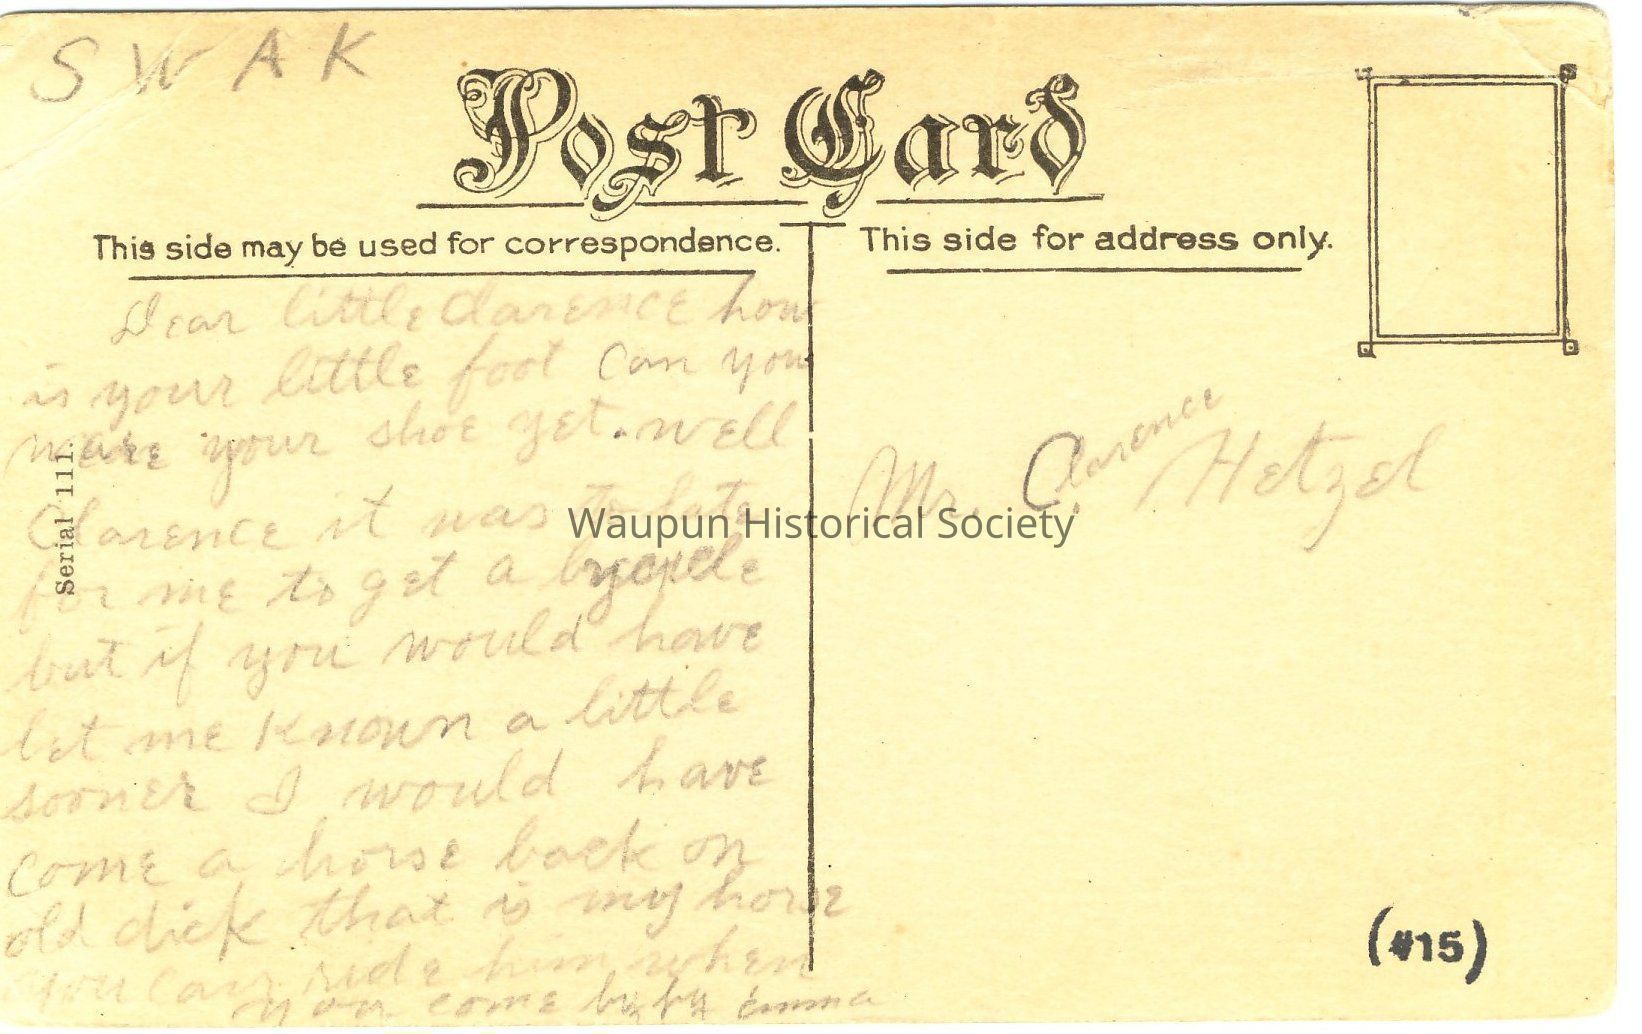 S W A K
Post Card
This side may be used for correspondence.
This side for address only.
Dear little Clarence how
is your little foot can you
weare your shoe yet. well
Clarence it was to late
for me to get a bycycle
but if you would have
let me known a little
sooner I would have
come a horse back on
old dick that is my horse
you can ride him when
you come by by Emma
Serial 111.
Mr. C. Hetzel
Clarence
Waupun Historical Society
(#15)